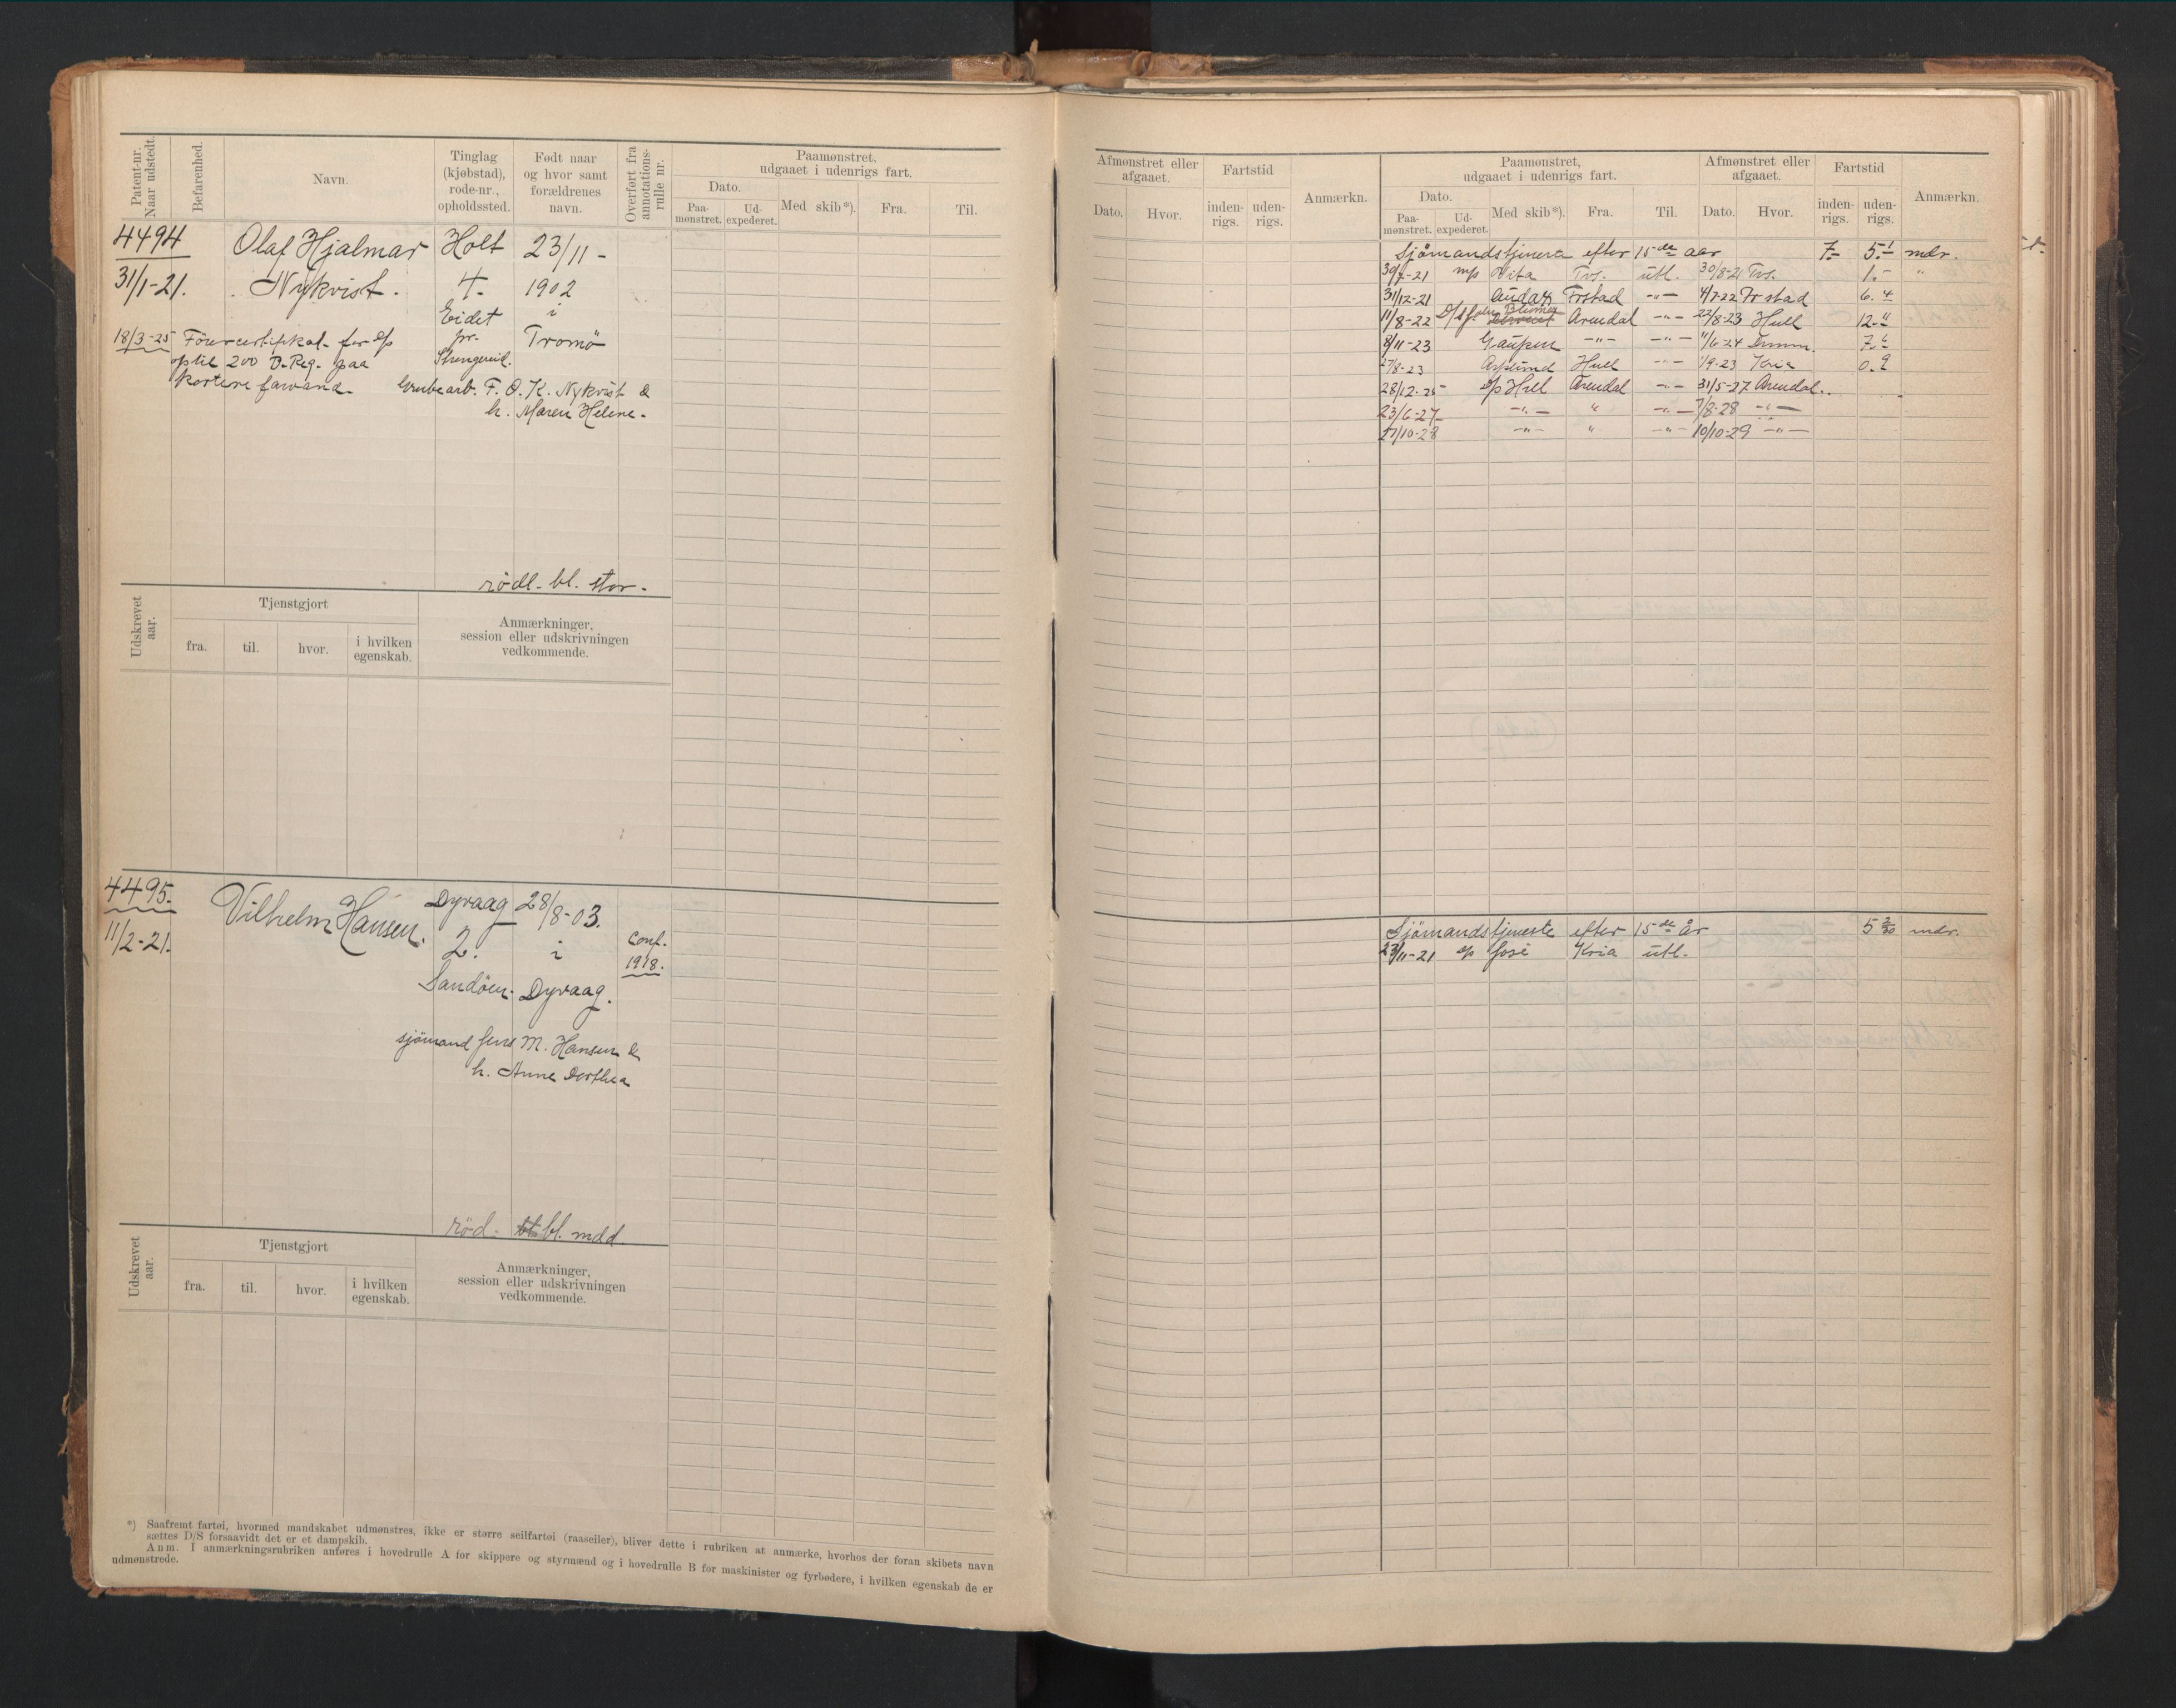 Patent-nr.
Naar udstedt.
Befarenhed.
Navn.
Tinglag
(kjøbstad),
rode-nr.,
opholdssted.
Født naar
og hvor samt
forældrenes
navn.
Overført fra
annotations-
rulle nr.
Paamønstret,
udgaaet i udenrigs fart.
Dato.
Paa-
mønstret.
Ud-
expederet.
Med skib*).
Fra.
Til.
4494
31/1-21.
Olaf Hjalmar
Nykvist.
Holt
4.
Eidet
pr.
23/11-
1902
i
Tromö
18/3-25 Förercertifikat for s/p
optil 200 B.Reg. paa
kortere farvand.
Grubearb. F. O. K. Nykvist &
h. Maren Helene.
rödl. bl. stor.
Udskrevet
aar.
Tjenstgjort
fra.
til.
hvor.
i hvilken
egenskab.
Anmærkninger,
session eller udskrivningen
vedkommende.
4495.
11/2-21.
Vilhelm Hansen.
Dyvaag
2.
Sandöen.
28/8-03.
i
Dyvaag.
Conf.
1918.
sjömand Jens M. Hansen &
h. Anne Dorthea
röd. bl. mdd.
Udskrevet
aar.
Tjenstgjort
fra.
til.
hvor.
i hvilken
egenskab.
Anmærkninger,
session eller udskrivningen
vedkommende.
*) Saafremt fartøi, hvormed mandskabet udmønstres, ikke er større seilfartøi (raaseiler), bliver dette i rubriken at anmærke, hvorhos der foran skibets navn
sættes D/S forsaavidt det er et dampskib.
Anm. I anmærkningsrubriken anføres i hovedrulle A for skippere og styrmænd og i hovedrulle B for maskinister og fyrbødere, i hvilken egenskab de er
udmønstrede.
Afmønstret eller
afgaaet.
Dato.
Hvor.
Fartstid
inden-
rigs.
uden-
rigs.
Anmærkn.
Paamønstret,
udgaaet i udenrigs fart.
Dato.
Paa-
mønstret.
Ud-
expederet.
Med skib*).
Fra.
Til.
Afmønstret eller
afgaaet.
Dato.
Hvor.
Fartstid
inden-
rigs.
uden-
rigs.
Anmærkn.
Sjömandstjeneste efter 15de aar 7.- 5.1 mdr.
30/7-21 m/p Tvs. utl. 30/8-21 Tvs. 1.- "
31/12-21 Frstad -"- 4/7-22 Frstad 6.4
11/8-22 Arendal -"- 22/8-23 Hull 12.11
8/11-23 Gaupen -"- -"- 11/6-24 7.6
27/8-23 Asplund Hull -"- 1/9-23 Kria 0.9
28/12-25 s/p Hill Arendal -"- 31/5-27 Arendal.
23/6-27 -"- " -"- 7/8-28 -"-
27/10-28 -"- " -"- 10/10-29 -"-
Sjömandstjeneste efter 15de år 5 2/30 mdr.
23/11-21 s/p José Kria utl.